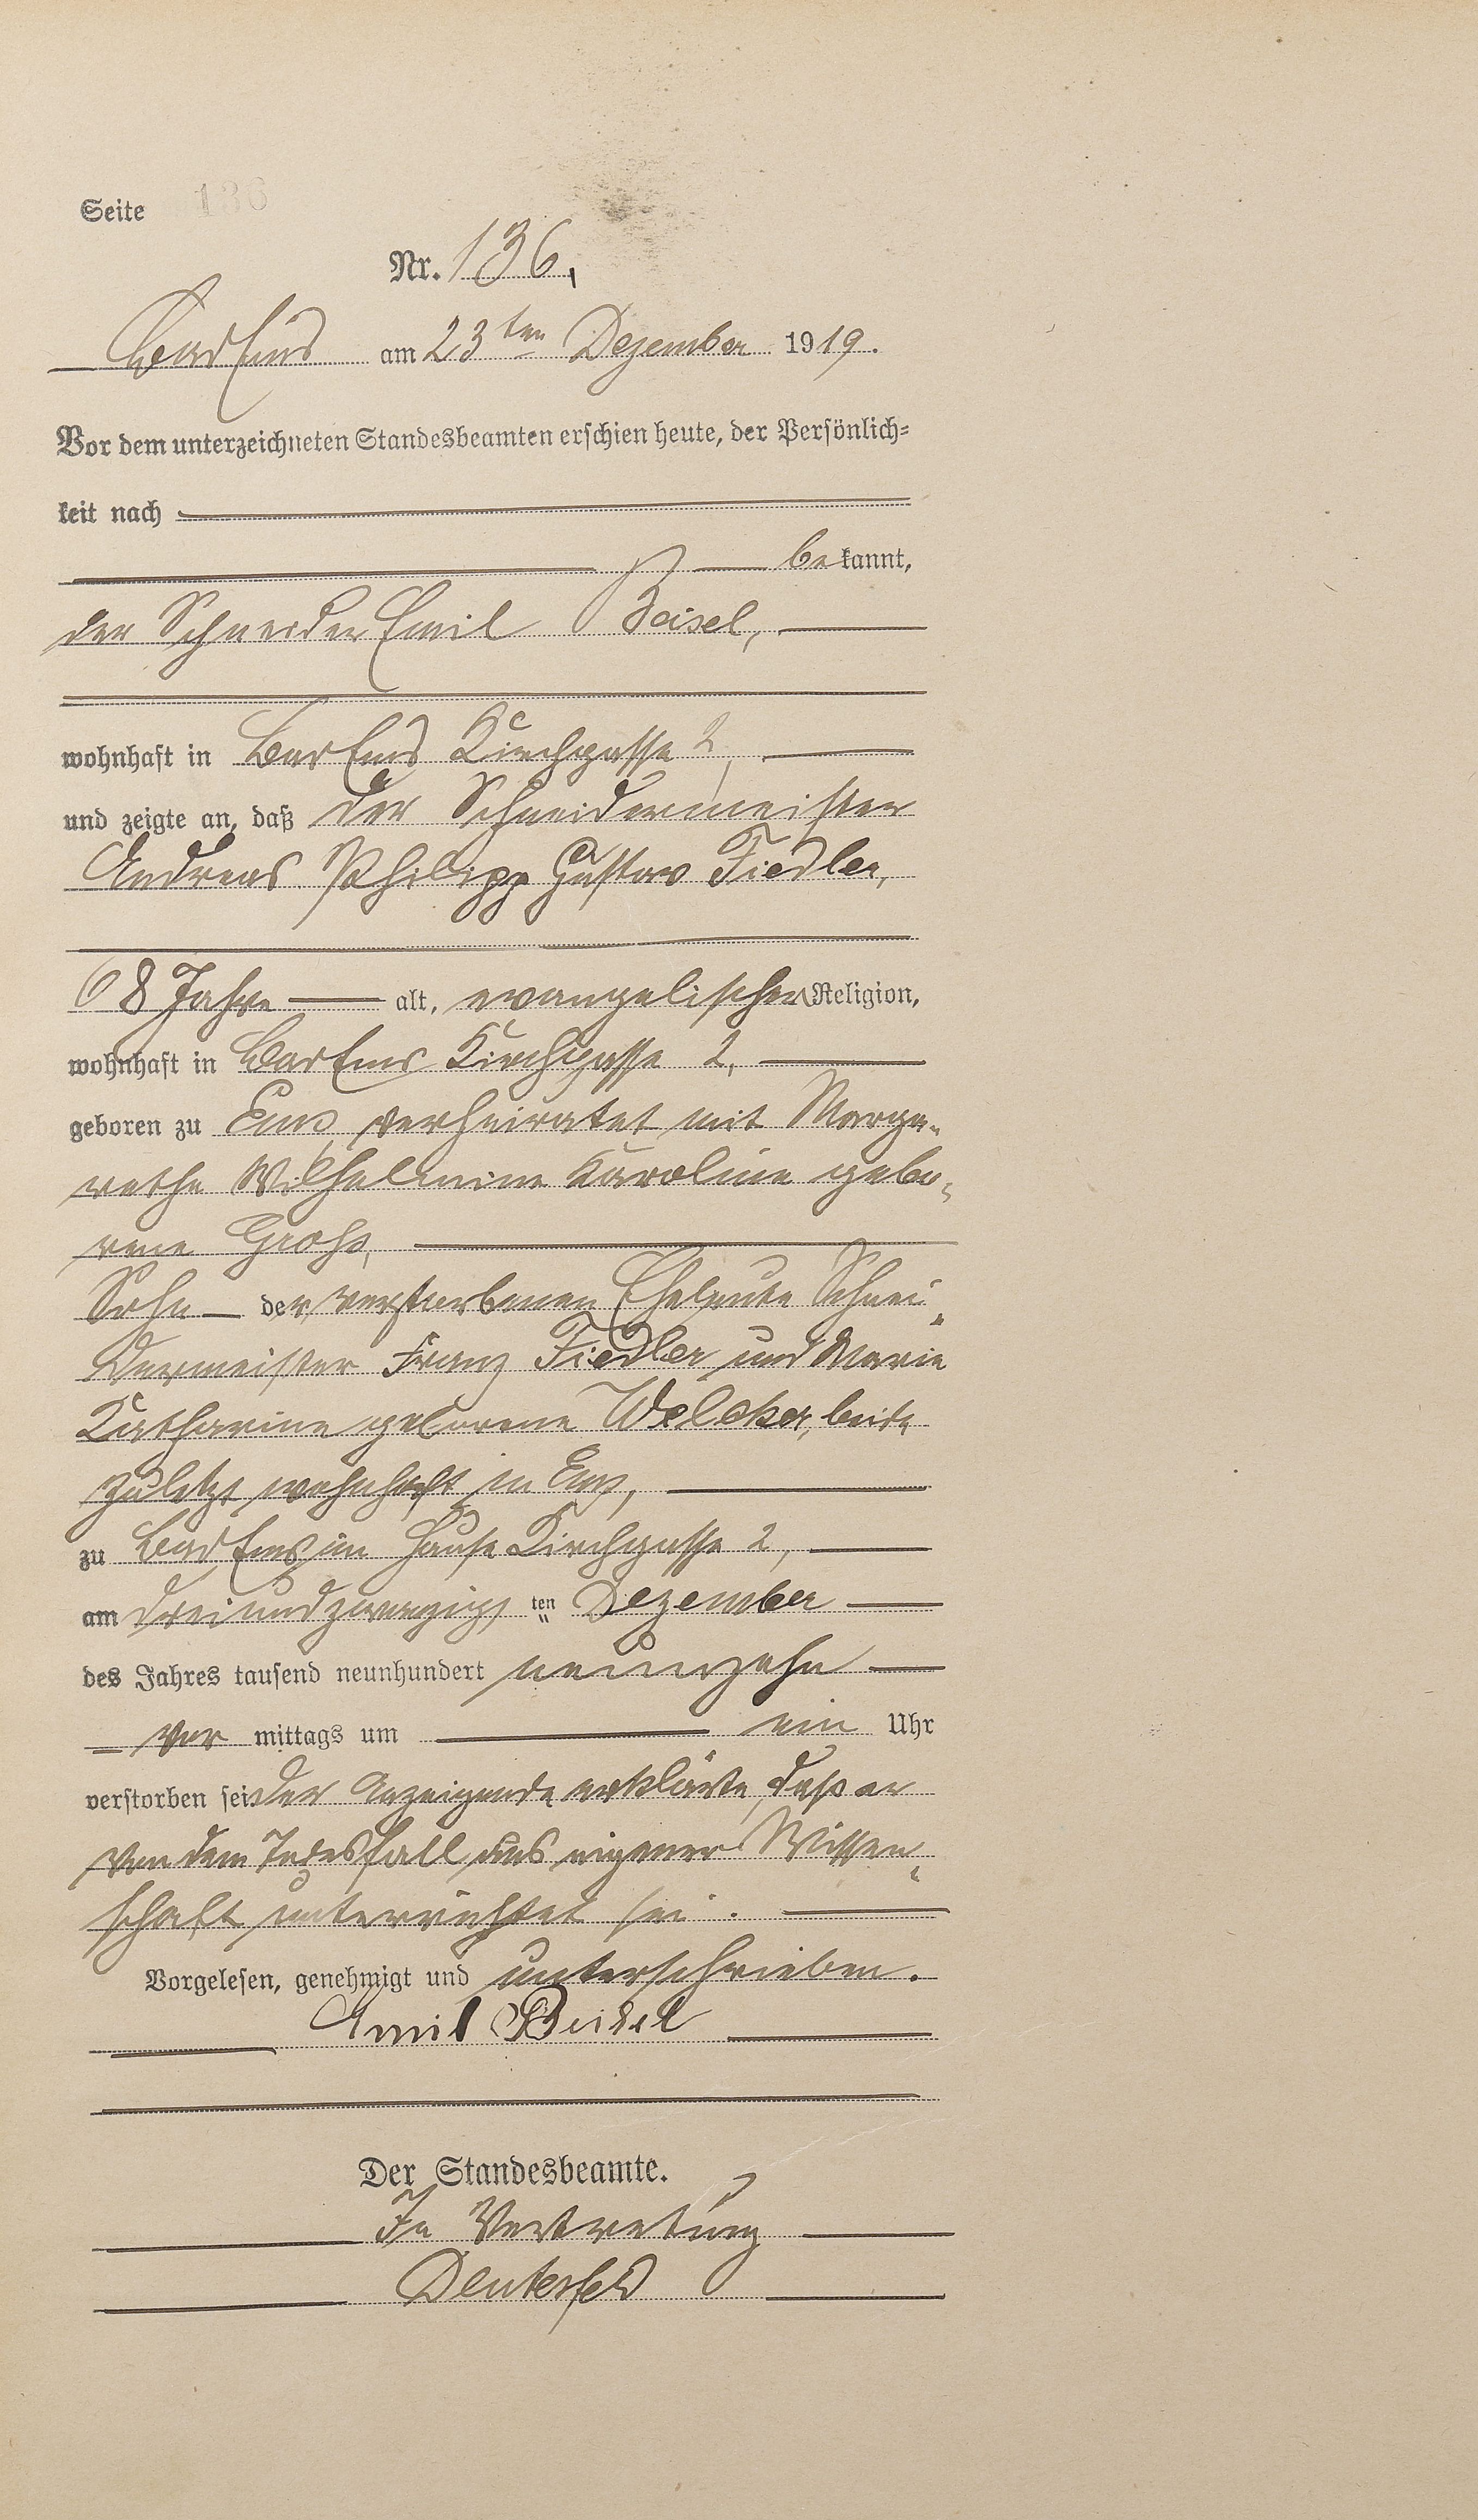 Seite 136
Nr. 136,
Bad Ems am 23ten Dezember 1919.
Vor dem unterzeichneten Standesbeamten erschien heute, der Persönlich=
keit nach
bekannt,
der Schneider Emil Beisel,
wohnhaft in Bad Ems Kirchgasse 2,
und zeigte an, daß der Schneidermeister
Andreas Philipp Gustav Fiedler,
68 Jahre alt, evangelischer Religion,
wohnhaft in Bad Ems Kirchgasse 2,
geboren zu Ems, verheiratet mit Marga-
rethe Wilhelmine Karoline gebo-
rene Groß,
Sohn der verstorbenen Eheleute Schnei-
dermeister Franz Fiedler und Marie
Katharine geborene Welcker, beide
zuletzt wohnhaft in Ems,
zu Bad Ems im Hause Kirchgasse 2,
am dreiundzwanzigsten Dezember
des Jahres tausend neunhundert neunzehn
vor mittags um ein Uhr
verstorben sei. Der Anzeigende erklärte, daß er
von dem Todesfall aus eigener Wissen-
schaft unterrichtet sei.
Vorgelesen, genehmigt und unterschrieben.
Emil Beisel
Der Standesbeamte.
In Vertretung